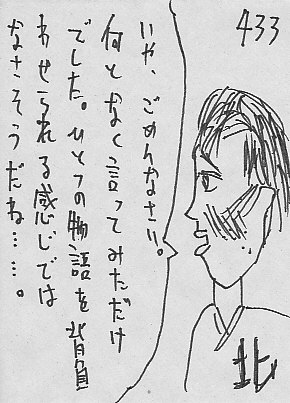 433
いや、ごめんなさい。
何となく言ってみただけ
でした。ひとつの物語を背負
わせられる感じでは
なさそうだね……。
北